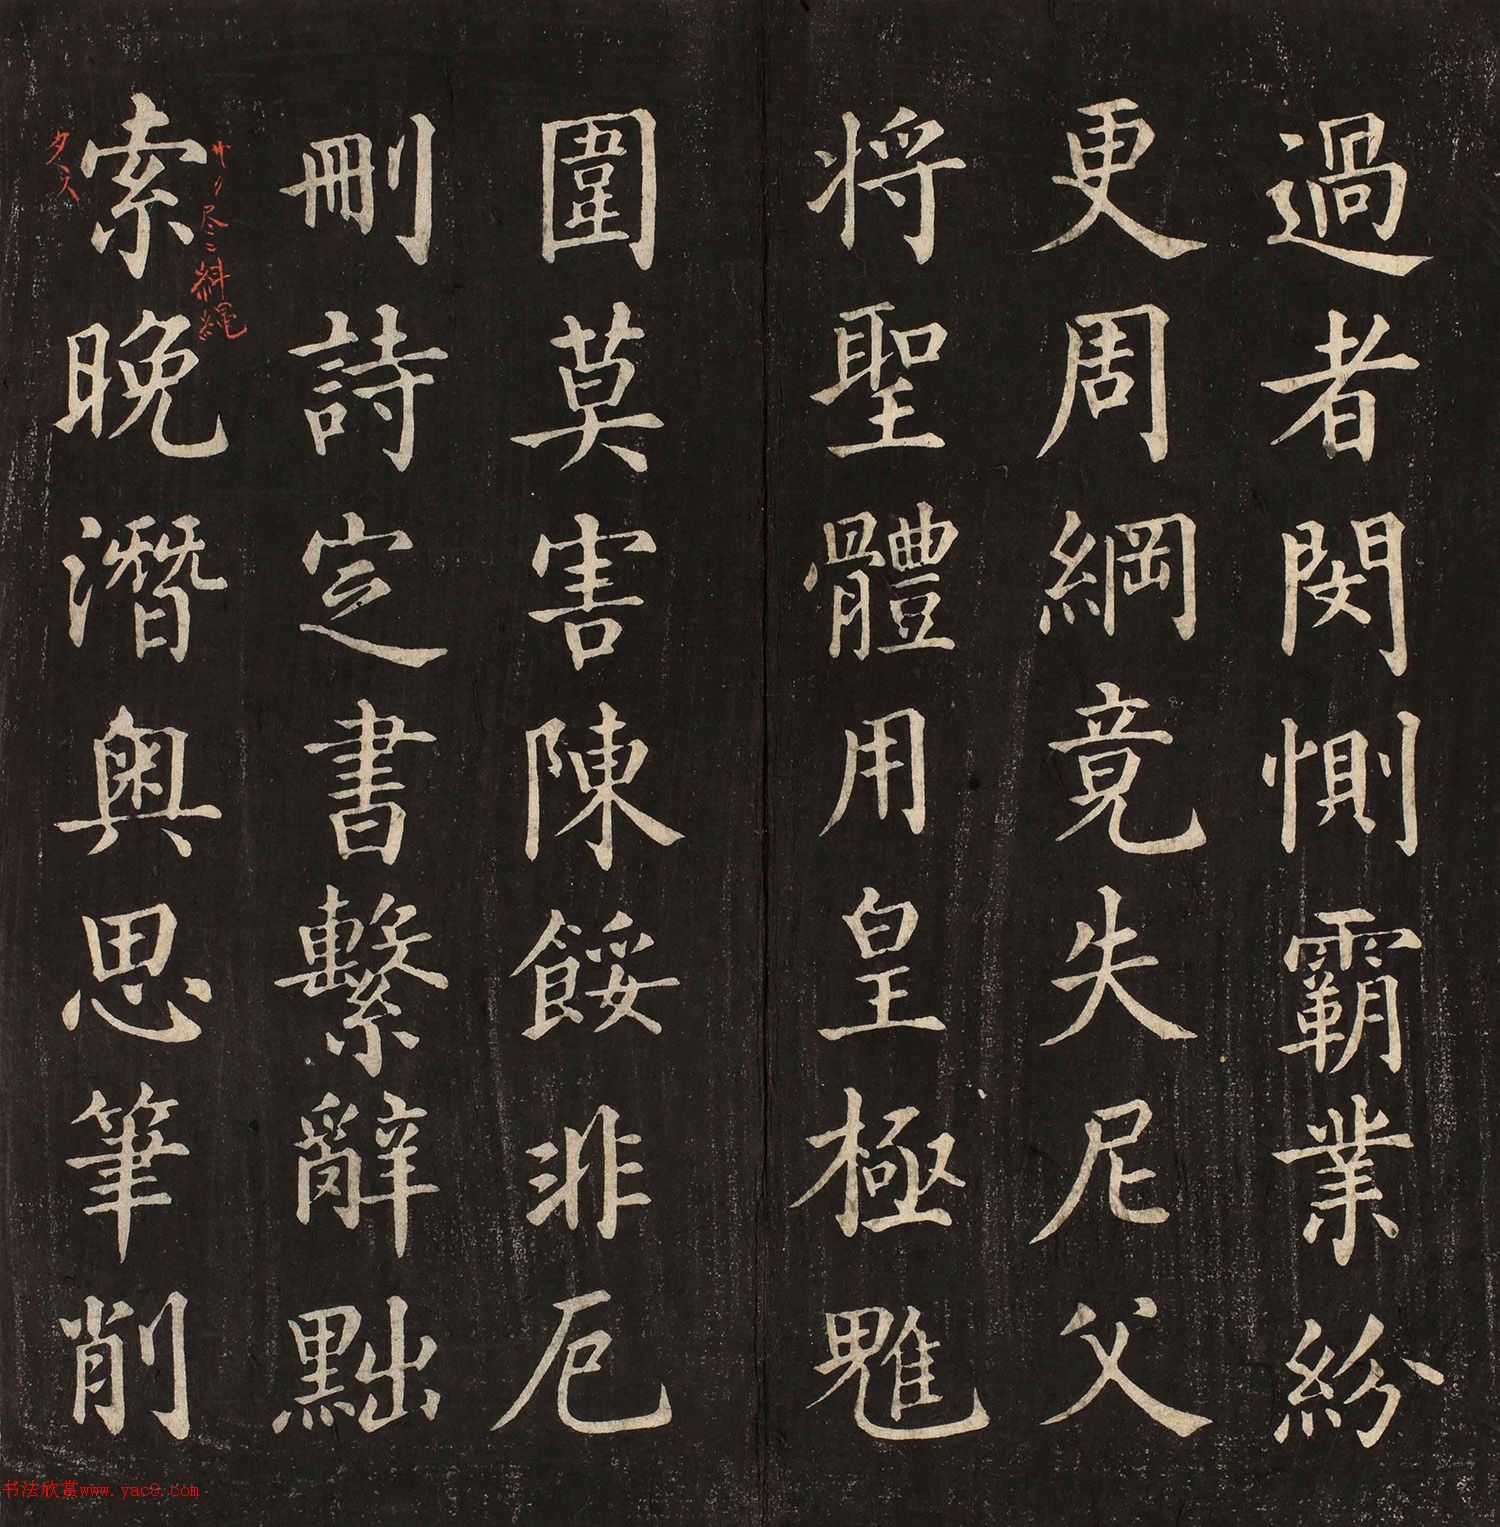 過者閔惻霸業紛
更周綱竟失尼父
将聖體用皇極魋
圍莫害陳餒非厄
刪詩定書繫辭黜
索晚潛奥思筆削
书法欣赏www.yac8.com